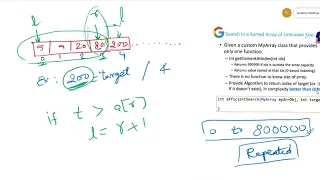 l
r
l
5 9 20 80 200
0 1 2 3 4
Ex: 200 → target / 4
if t > a[r]
l = r + 1
Search in a Sorted Array of Unknown Size
• Given a custom MyArray class that provides
only one function.
– int getElementAtIndex(int idx)
– Returns 800000 if idx is outside the array capacity.
– Returns value stored at that idx (0 based indexing).
– There is no function to know size of array.
• Provide Algorithm to return index of target (or -1
if it doesn't exist), in complexity better than O(N)
int efficientSearch(MyArray myArrObj, int target
0 to 800000
Repeated